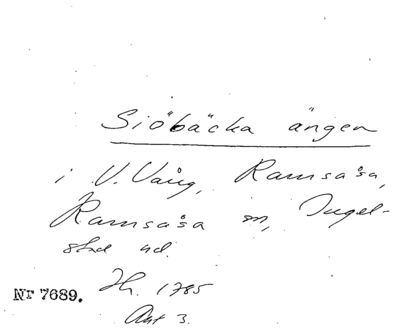 Siöbäcka ängen
i V. Vång, Ramsåsa,
Ramsåsa sn, Ingel-
stad hd.
Nr 7689. Jh. 1785
Akt 3.